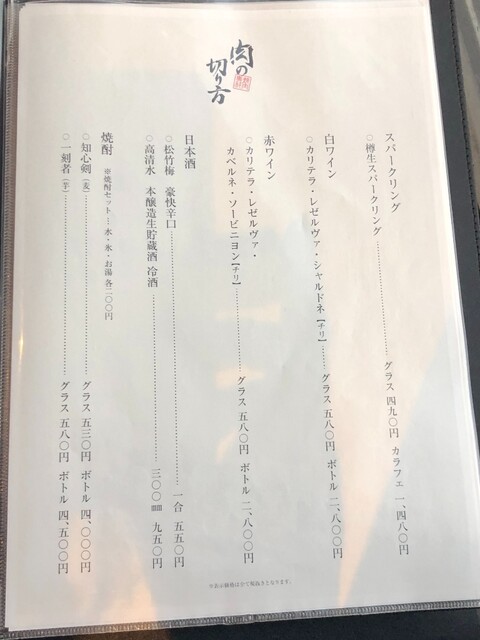 肉の
切り方
スパークリング
○樽生スパークリング……グラス 四九〇円 カラフェ 一、四八〇円
白ワイン
○カリテラ・レゼルヴァ・シャルドネ【チリ】……グラス 五八〇円 ボトル 二、八〇〇円
赤ワイン
○カリテラ・レゼルヴァ・
カベルネ・ソービニヨン【チリ】……グラス 五八〇円 ボトル 二、八〇〇円
日本酒
○松竹梅 豪快辛口……一合 五五〇円
○高清水 本醸造生貯蔵酒 冷酒……三〇〇㎖ 九五〇円
焼酎 ※焼酎セット…水・氷・お湯 各二〇〇円
○知心剣(麦)……グラス 五三〇円 ボトル 四、〇〇〇円
○一刻者(芋)……グラス 五八〇円 ボトル 四、五〇〇円
※表示価格は全て税抜きとなります。